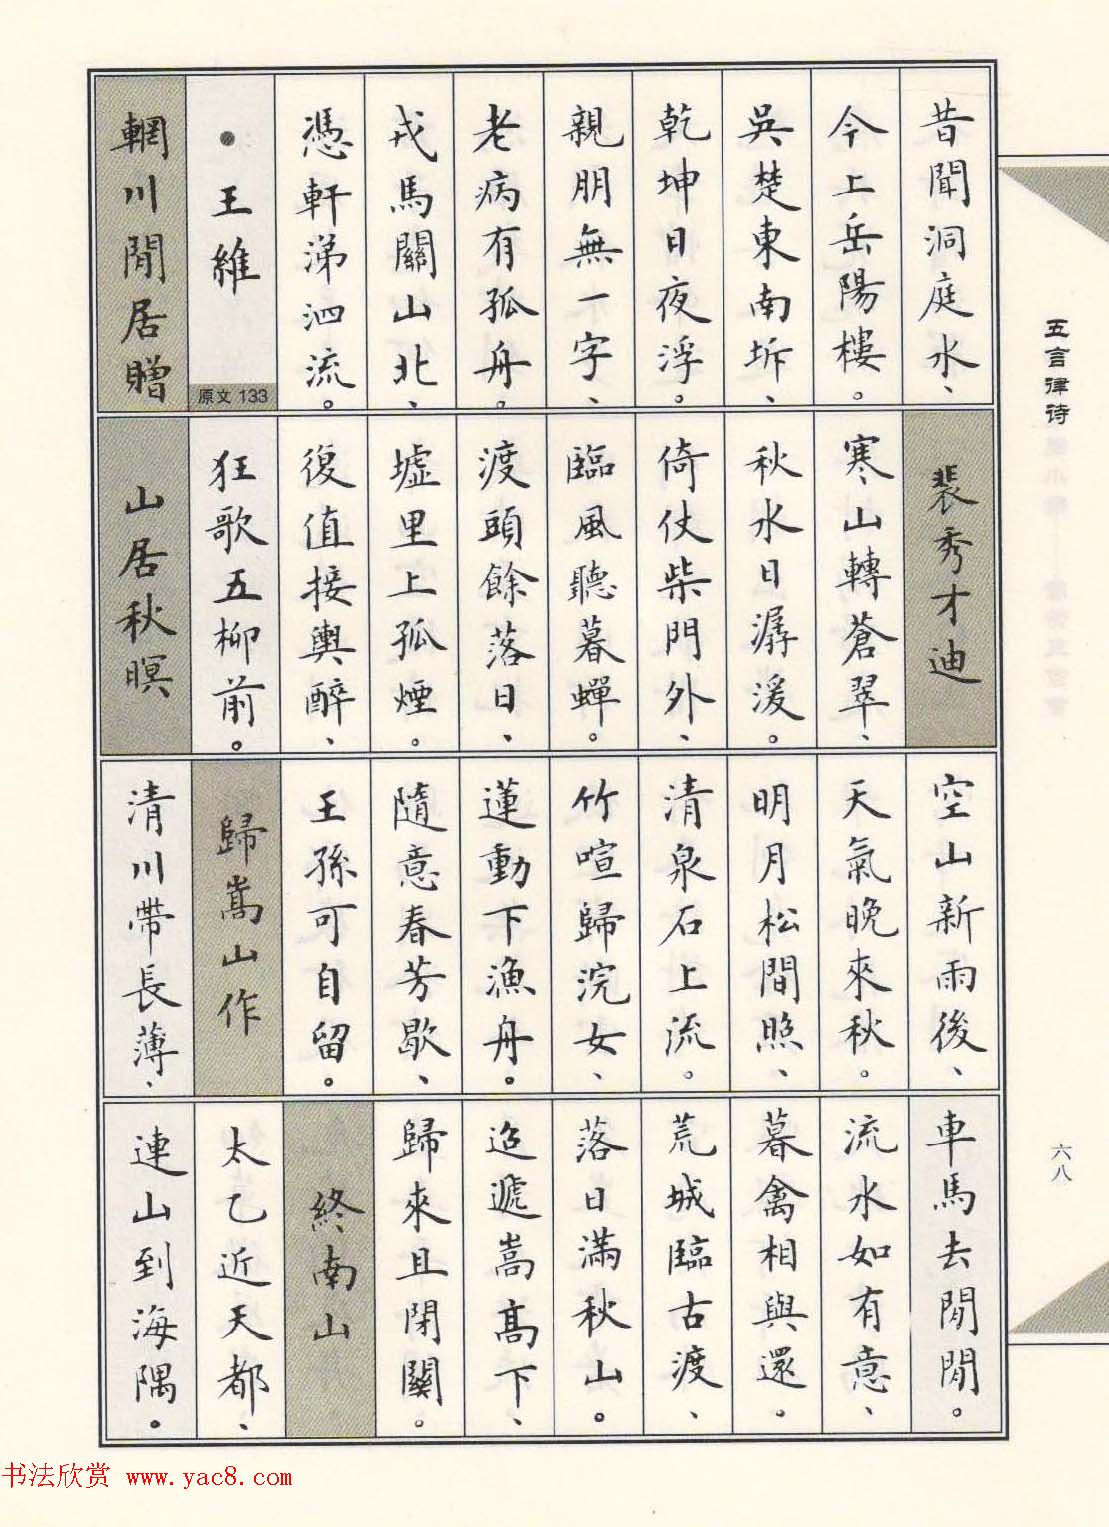 昔聞洞庭水、
今上岳陽樓。
吳楚東南坼、
乾坤日夜浮。
親朋無一字、
老病有孤舟。
戎馬關山北、
憑軒涕泗流。
王維
原文 133
輞川閒居贈
裴秀才迪
寒山轉蒼翠、
秋水日潺湲。
倚仗柴門外、
臨風聽暮蟬。
渡頭餘落日、
墟里上孤煙。
復值接輿醉、
狂歌五柳前。
山居秋暝
空山新雨後、
天氣晚來秋。
明月松間照、
清泉石上流。
竹喧歸浣女、
蓮動下漁舟。
隨意春芳歇、
王孫可自留。
歸嵩山作
清川帶長薄、
車馬去閒閒。
流水如有意、
暮禽相與還。
荒城臨古渡、
落日滿秋山。
迢遞嵩高下、
歸來且閉關。
終南山
太乙近天都、
連山到海隅。
五言律诗
六八
书法欣赏 www.yac8.com